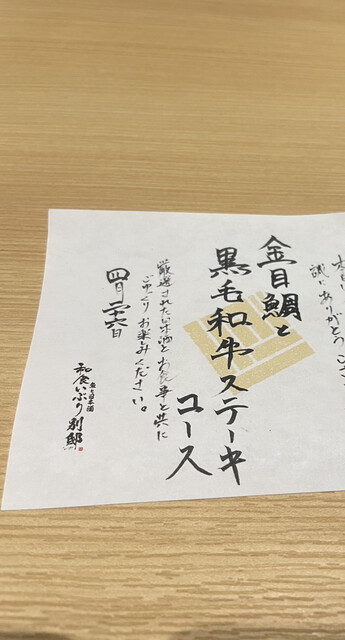 誠にありがとうござ
金目鯛と
黒毛和牛ステーキ
コース
厳選されたお酒とお食事と共に
ごゆっくりお楽しみください。
四月二十六日
魚と日本酒
和食いぶり別邸